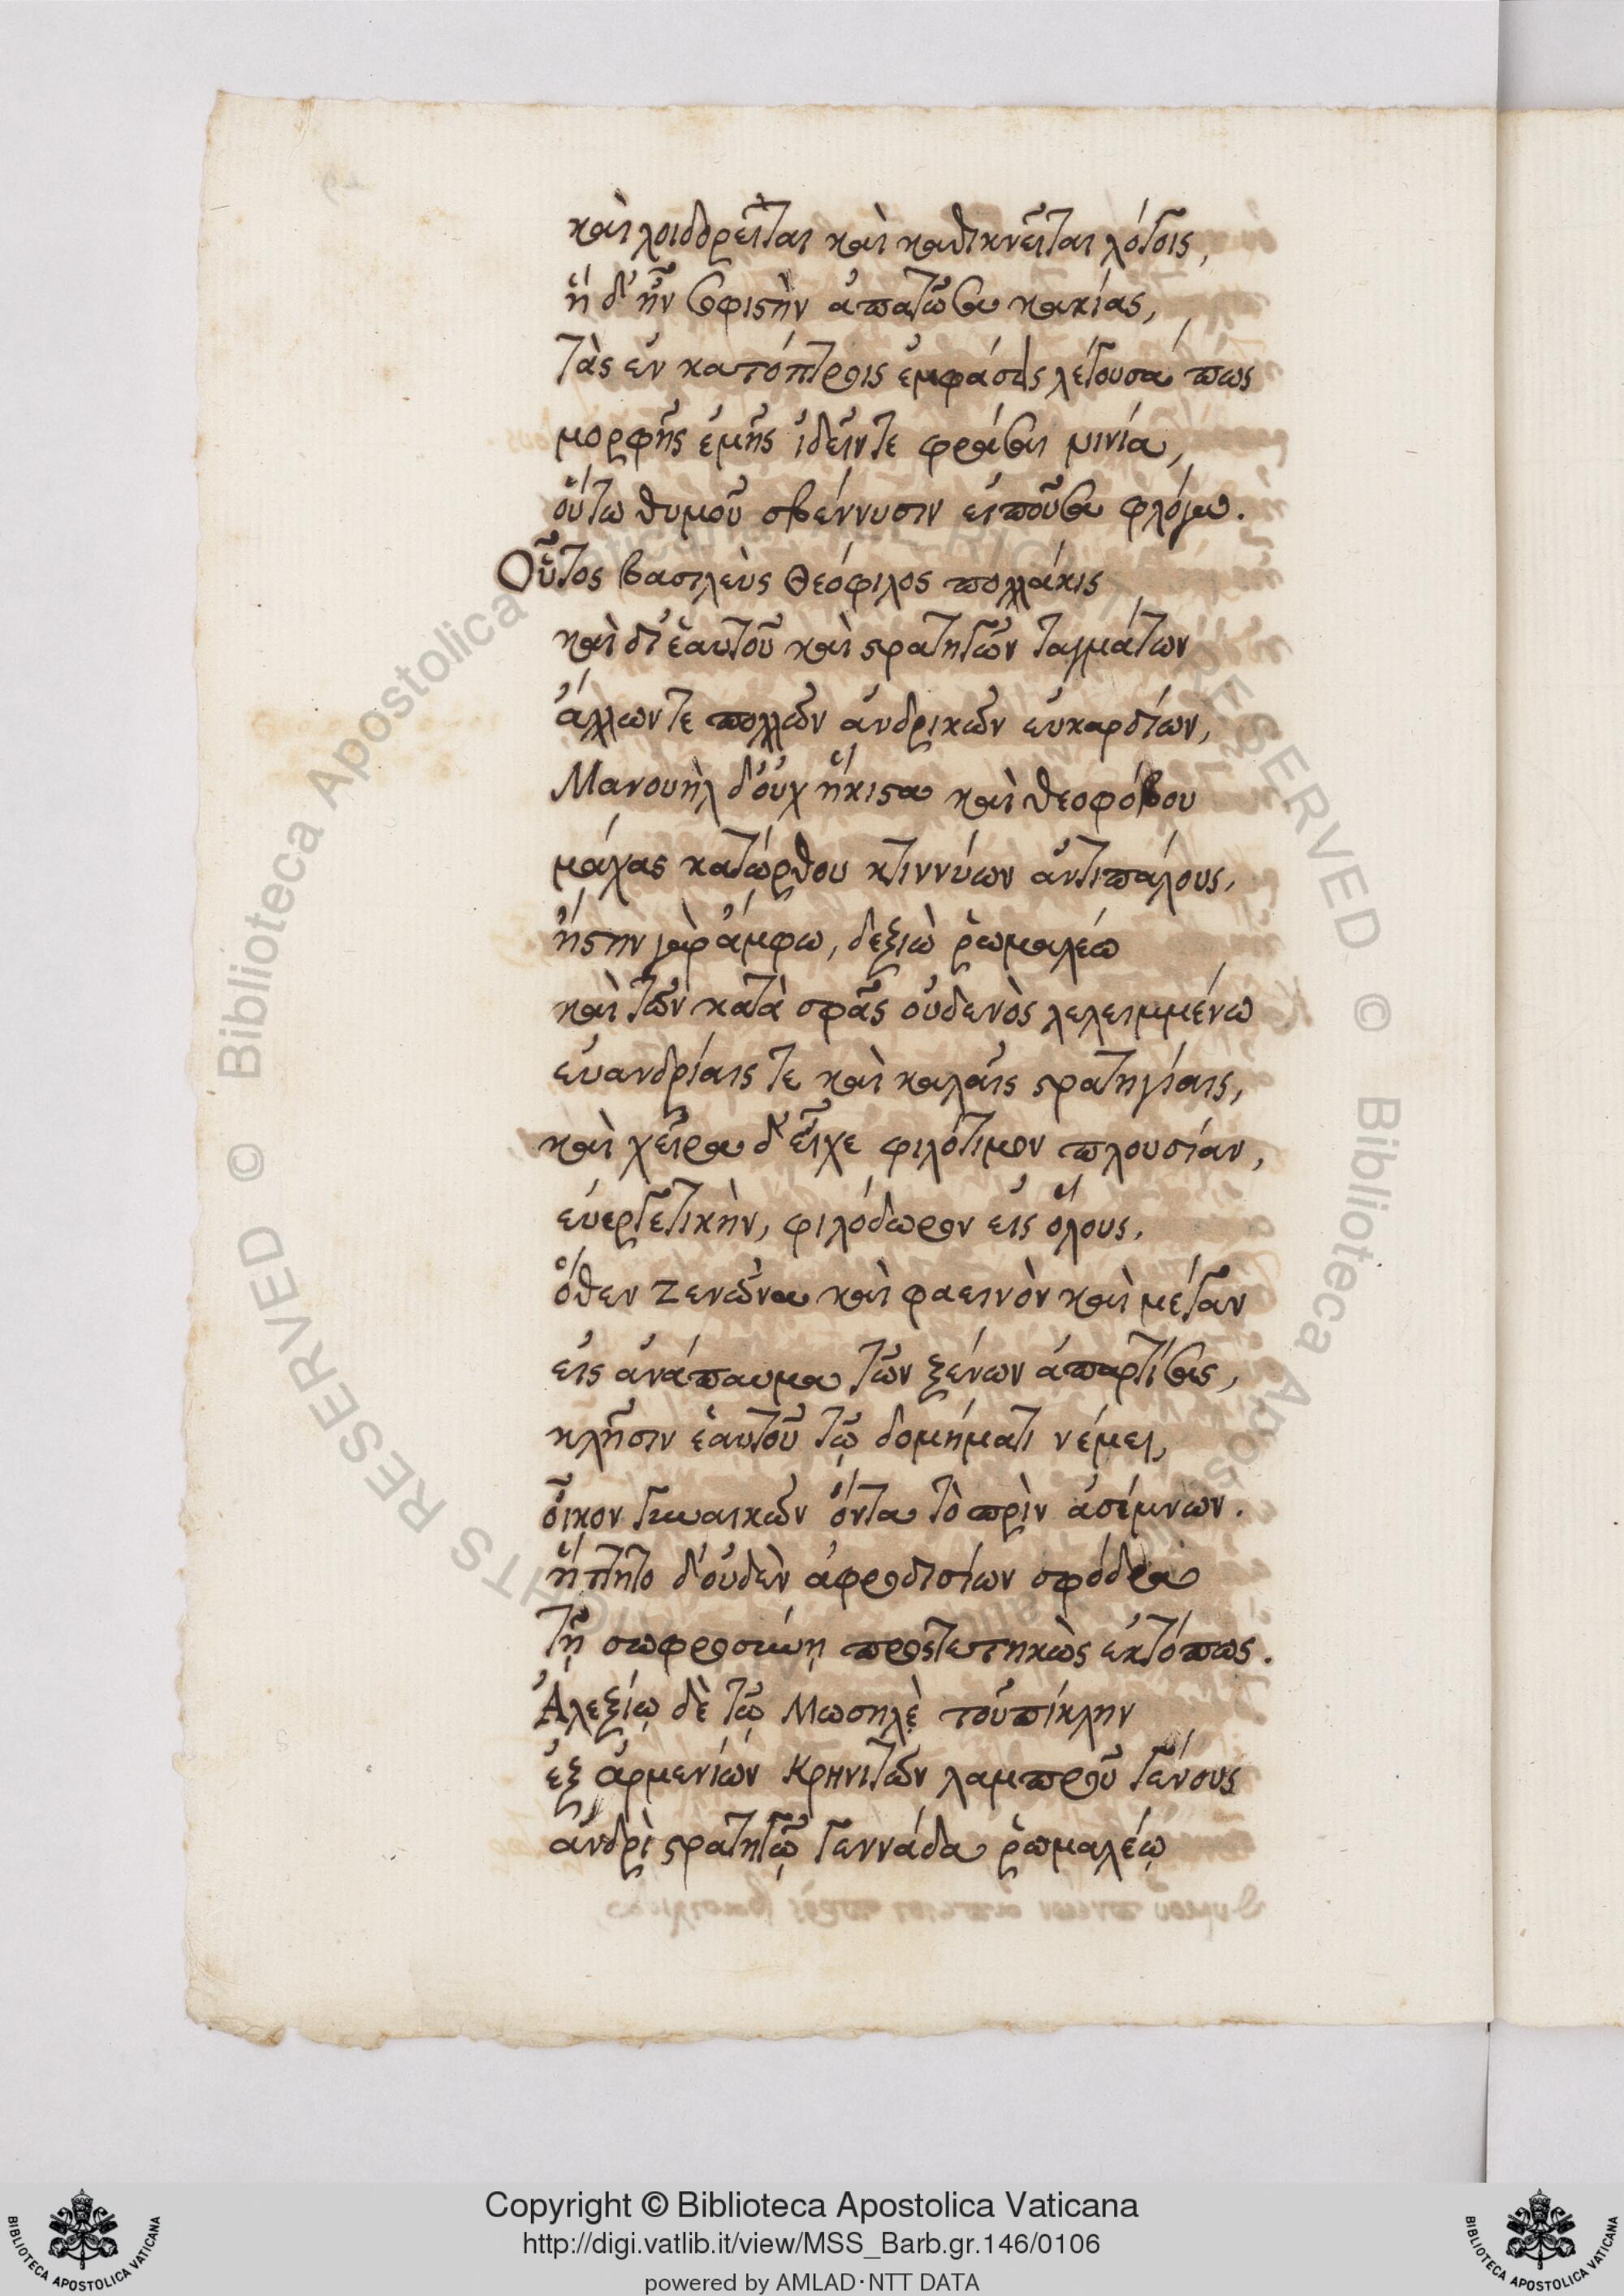 καὶ λοιδορεῖται καὶ καθικνεῖται λόγοις,
ἡ δ' ἦν σοφιστὴν ἀπατῶσα κακίας,
τὰς ἐν κατόπτροις ἐμφάσεις λέγουσά πως
μορφῆς ἐμῆς ἰδεῖν τε φράσαι μινία,
οὕτω θυμοῦ σβέννυσιν εἰποῦσα φλόγα.
Οὗτος βασιλεὺς Θεόφιλος πολλάκις
καὶ δι' ἑαυτοῦ καὶ στρατηγῶν ταγμάτων
ἄλλων τε πολλῶν ἀνδρικῶν εὐκαρδίων,
Μανουὴλ δ' οὐχ ἥκιστα καὶ θεοφόβου
μάχας κατώρθου κτιννύων ἀντιπάλους,
ἤστην γὰρ ἄμφω, δεξιὼ ῥωμαλέω
καὶ τῶν κατὰ σφᾶς οὐδενὸς λελειμμένω
εὐανδρίαις τε καὶ καλαῖς στρατηγίαις,
καὶ χεῖρα δ' εἶχε φιλότιμον πλουσίαν,
εὐεργετικὴν, φιλόδωρον εἰς ὅλους.
ὅθεν ξενῶνα καὶ φαεινὸν καὶ μέγαν
εἰς ἀνάπαυμα τῶν ξένων ἀπαρτίσας,
κλῆσιν ἑαυτοῦ τῷ δομήματι νέμει,
οἶκον γυναικῶν ὄντα τὸ πρὶν ἀσέμνων.
ἥττητο δ' οὐδὲν ἀφροδισίων σφόδρα
τῇ σωφροσύνῃ προστετηκὼς ἐκτόπως.
Ἀλεξίῳ δὲ τῷ Μωσηλὲ τοὐπίκλην
ἐξ ἀρμενίων Κρηνιτῶν λαμπροῦ γένους
ἀνδρὶ στρατηγῷ γεννάδα ῥωμαλέῳ
Copyright © Biblioteca Apostolica Vaticana
http://digi.vatlib.it/view/MSS_Barb.gr.146/0106
powered by AMLAD·NTT DATA